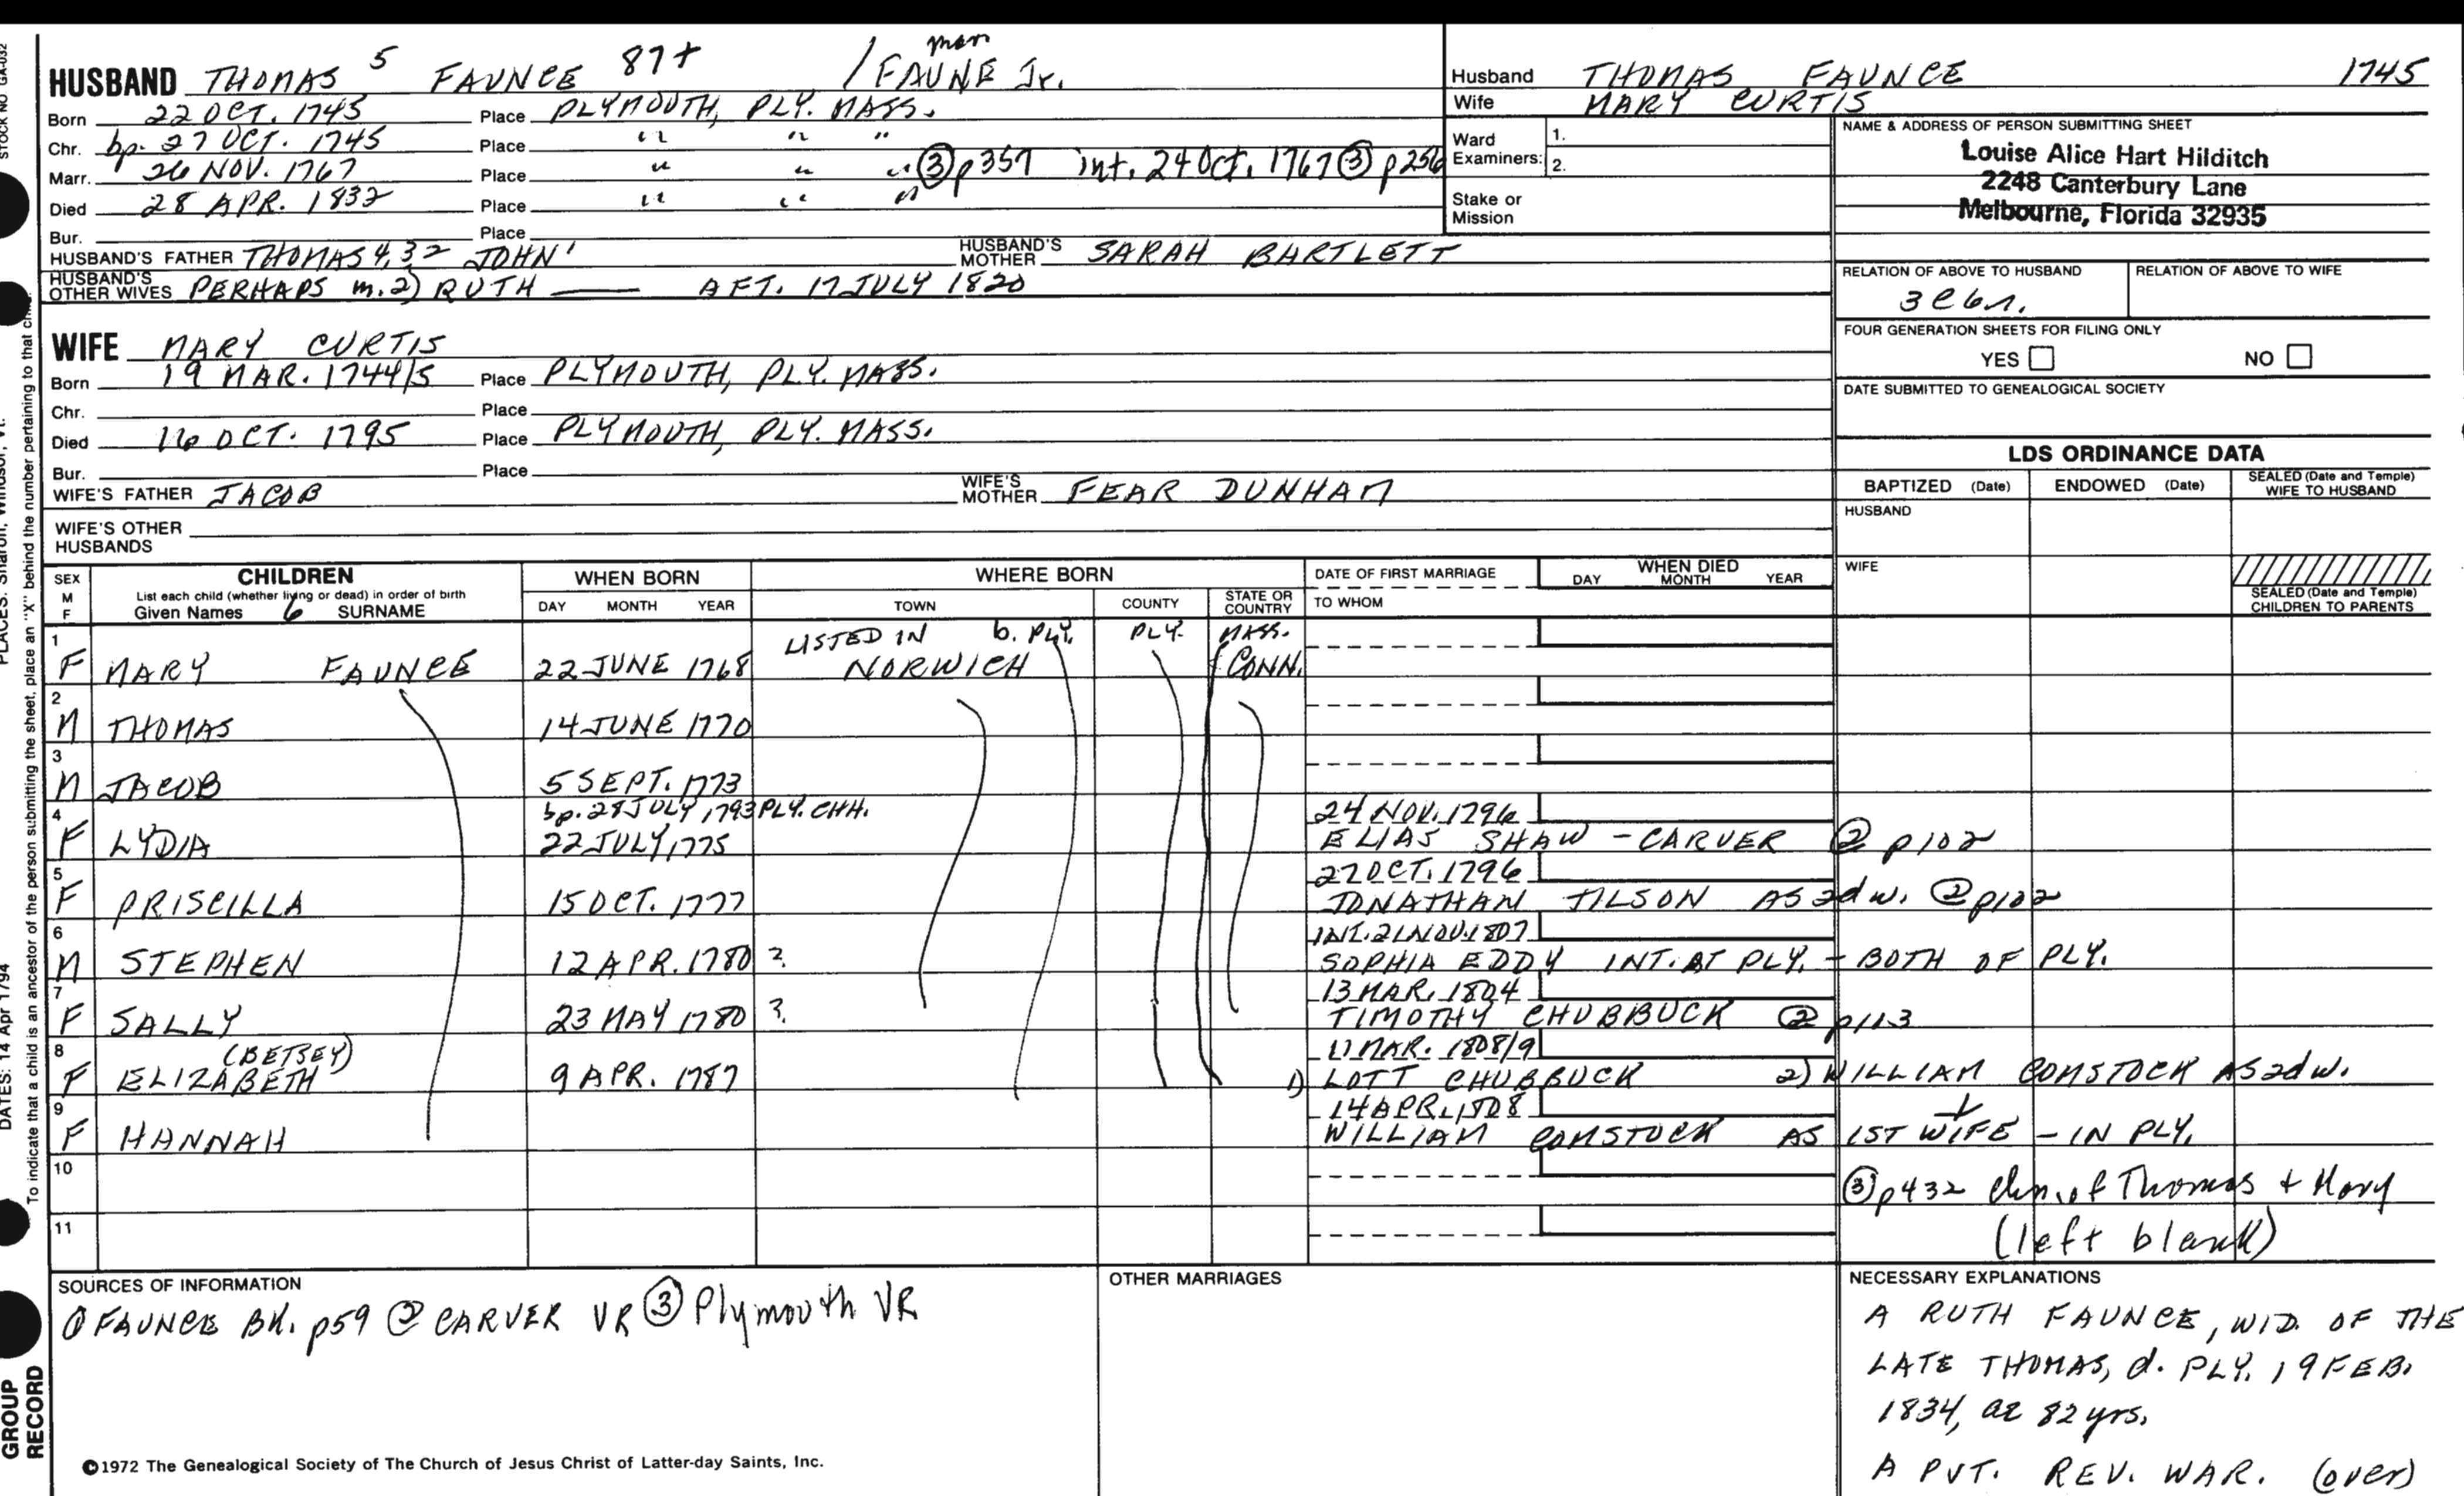 HUSBAND THOMAS 5 FAUNCE 87+ / FAUNE Jr.
Born 22 OCT. 1745 Place PLYMOUTH, PLY. MASS.
Chr. bp. 27 OCT. 1745 Place " " "
Marr. 26 NOV. 1767 Place " " " ③ p357 int. 24 Oct. 1767 ③ p256
Died 28 APR. 1832 Place " " "
Bur. Place
HUSBAND'S FATHER THOMAS 4,32 JOHN' HUSBAND'S MOTHER SARAH BARTLETT
HUSBAND'S OTHER WIVES PERHAPS m. 2) RUTH —— AFT. 17 JULY 1820
Husband THOMAS FAUNCE 1745
Wife MARY CURTIS
Ward Examiners: 1.
2.
Stake or Mission
NAME & ADDRESS OF PERSON SUBMITTING SHEET
Louise Alice Hart Hilditch
2248 Canterbury Lane
Melbourne, Florida 32935
RELATION OF ABOVE TO HUSBAND RELATION OF ABOVE TO WIFE
FOUR GENERATION SHEETS FOR FILING ONLY
YES NO
DATE SUBMITTED TO GENEALOGICAL SOCIETY
WIFE MARY CURTIS
Born 19 MAR. 1744/5 Place PLYMOUTH, PLY. MASS.
Chr. Place
Died 16 OCT. 1795 Place PLYMOUTH, PLY. MASS.
Bur. Place
WIFE'S FATHER JACOB WIFE'S MOTHER FEAR DUNHAM
WIFE'S OTHER HUSBANDS
LDS ORDINANCE DATA
BAPTIZED (Date) ENDOWED (Date) SEALED (Date and Temple) WIFE TO HUSBAND
HUSBAND
WIFE
SEALED (Date and Temple) CHILDREN TO PARENTS
SEX M F CHILDREN WHEN BORN WHERE BORN DATE OF FIRST MARRIAGE WHEN DIED
List each child (whether living or dead) in order of birth
Given Names SURNAME DAY MONTH YEAR TOWN COUNTY STATE OR COUNTRY TO WHOM DAY MONTH YEAR
1 LISTED IN b. PLY. PLY. MASS.
F MARY FAUNCE 22 JUNE 1768 NORWICH CONN.
2
M THOMAS 14 JUNE 1770
3
M JACOB 5 SEPT. 1773
4 bp. 28 JULY 1793 PLY. CHH. 24 NOV. 1796
F LYDIA 22 JULY, 1775 ELIAS SHAW - CARVER ② p102
5 27 OCT. 1796
F PRISCILLA 15 OCT. 1777 JONATHAN TILSON AS 2d w. ② p102
6 INT. 21 NOV. 1807
M STEPHEN 12 APR. 1780 ? SOPHIA EDDY INT. AT PLY. - BOTH OF PLY.
7 13 MAR. 1804
F SALLY 23 MAY 1780 ? TIMOTHY CHUBBUCK ② p113
8 (BETSEY) MAR. 1808/9
F ELIZABETH 9 APR. 1787 1) LOTT CHUBBUCK 2) WILLIAM COMSTOCK AS 2d w.
9 14 APR. 1808
F HANNAH WILLIAM COMSTOCK AS 1ST WIFE - IN PLY.
10 ③ p432 chn. of Thomas + Mary
11 (left blank)
SOURCES OF INFORMATION
① FAUNCE BK. p59 ② CARVER VR ③ Plymouth VR
OTHER MARRIAGES
NECESSARY EXPLANATIONS
A RUTH FAUNCE, WID. OF THE
LATE THOMAS, d. PLY. 19 FEB.
1834, ae 82 yrs.
A PVT. REV. WAR. (over)
©1972 The Genealogical Society of The Church of Jesus Christ of Latter-day Saints, Inc.
STOCK NO GA-032
PLACES: Sharon, Windsor, Vt.
DATES: 14 Apr 1794
To indicate that a child is an ancestor of the person submitting the sheet, place an "X" behind the number pertaining to that
GROUP
RECORD